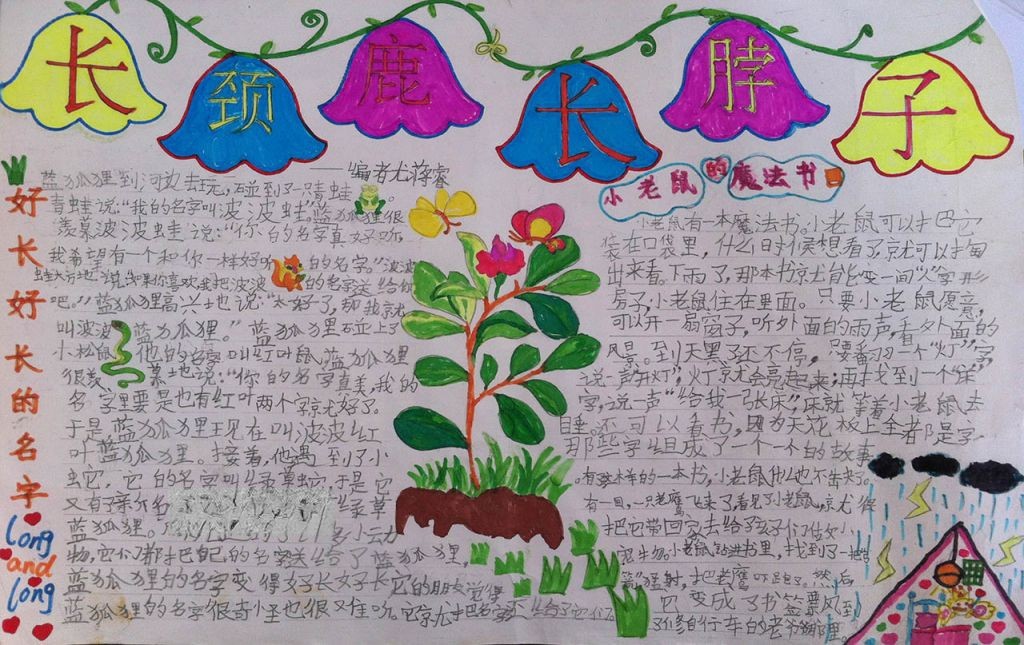 长颈鹿长脖子
编者尤蒋睿
好长好长的名字
long
and
long
蓝狐狸到河边去玩,碰到了一只青蛙
青蛙说:"我的名字叫波波蛙"蓝狐狸很
羡慕波波蛙说:"你的名字真好听
我希望有一个和你一样好听的名字。"波波
蛙大方地说:如果你喜欢我把波波的名字送给你
吧。"蓝狐狸高兴地说:"太好了,那我就
叫波波蓝狐狸。"蓝狐狸碰上了
小松鼠,他的名字叫红叶鼠,蓝狐狸
很羡慕地说:"你的名字真美,我的
名字里要是也有红叶两个字就好了。
于是蓝狐狸现在叫波波红
叶蓝狐狸。接着,他遇到了小
虫它,它的名字叫绿草虫它,于是它
又有了亲个名绿草
蓝狐狸。多小动
物,它们都把自己的名字送给了蓝狐狸,
蓝狐狸的名字变得好长好长,它的朋友觉得
蓝狐狸的名字很奇怪也很又佳听。它就把名字还给了它们。
小老鼠的魔法书
小老鼠有一本魔法书。小老鼠可以把它
装在口袋里,什么时候想看了就可以掏
出来看。下雨了,那本书就能变一间"人"字形
房子,小老鼠住在里面。只要小老鼠愿意,
可以开一扇窗子,听外面的雨声,看外面的
风景。到天黑了还不停,只要翻到一个"灯"字,
说一声"开灯",灯就会亮起来;再找到一个"床"
字,说一声"给我一张床",床就等着小老鼠去
睡。还可以看书,因为天花板上全都是字
那些字组成了一个个的故事
有这样的一本书,小老鼠他么也不缺了。
有一回,一只老鹰飞来了看见了小老鼠,就很
把它带回家去给孩子们做好小
小老鼠钻进书里,找到了一把
箭"猛射,把老鹰吓跑了。然后,
它变成了书签飘到
了修自行车的老爷爷那里。